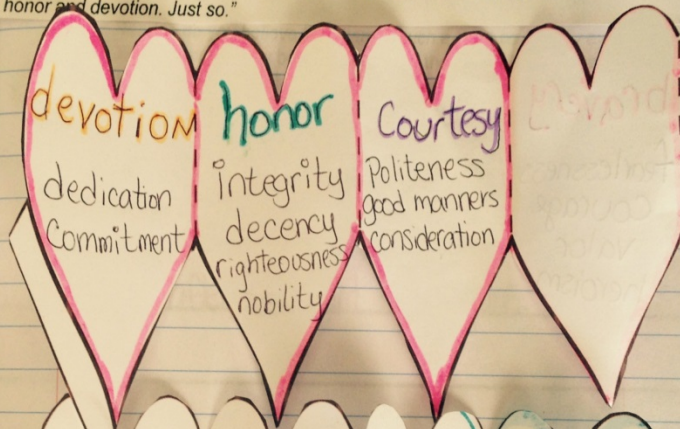 honor and devotion. Just so.”
devotion
dedication
Commitment
honor
integrity
decency
righteousness
nobility
Courtesy
Politeness
good manners
consideration